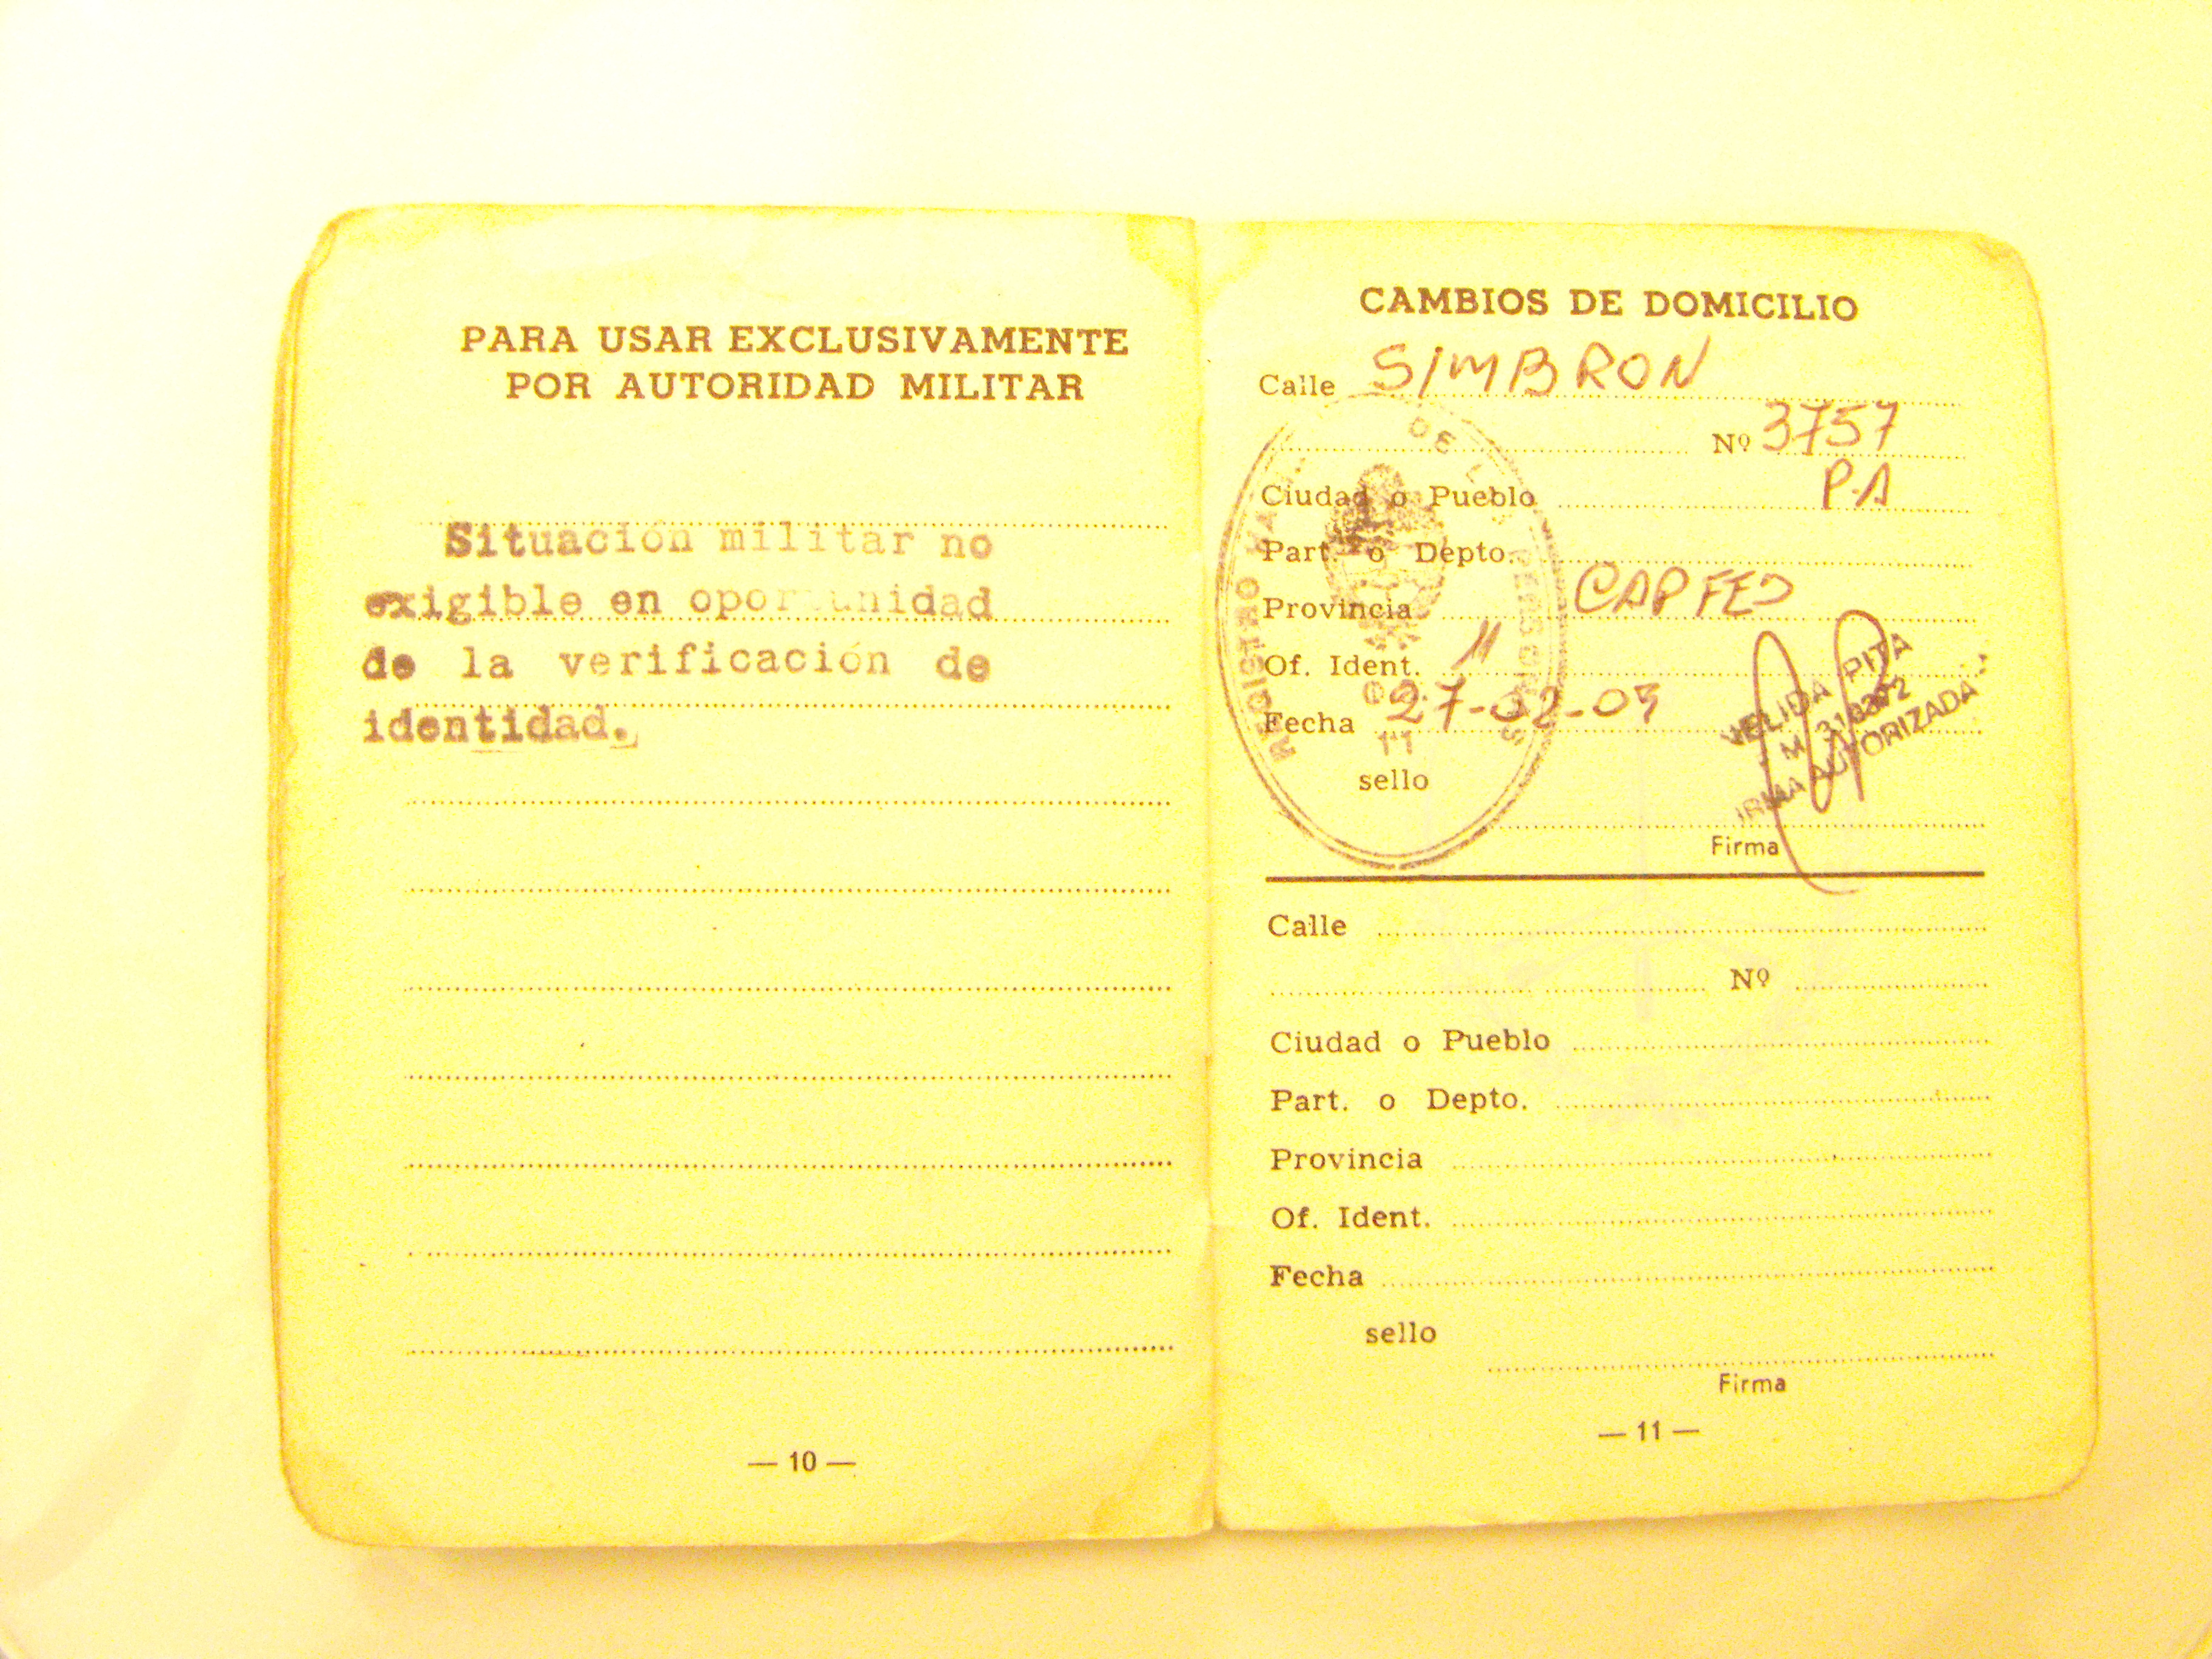 PARA USAR EXCLUSIVAMENTE
POR AUTORIDAD MILITAR
Situación militar no
exigible en oportunidad
de la verificación de
identidad.
— 10 —
CAMBIOS DE DOMICILIO
Calle SIMBRON
Nº 3757
Ciudad o Pueblo P.A
Part. o Depto.
Provincia CAP FED
Of. Ident. 11
Fecha 27-02-03
11
sello
REGISTRO DE PERSONAS
VELIDA PITA
AUTORIZADA
Firma
Calle
Nº
Ciudad o Pueblo
Part. o Depto.
Provincia
Of. Ident.
Fecha
sello
Firma
— 11 —